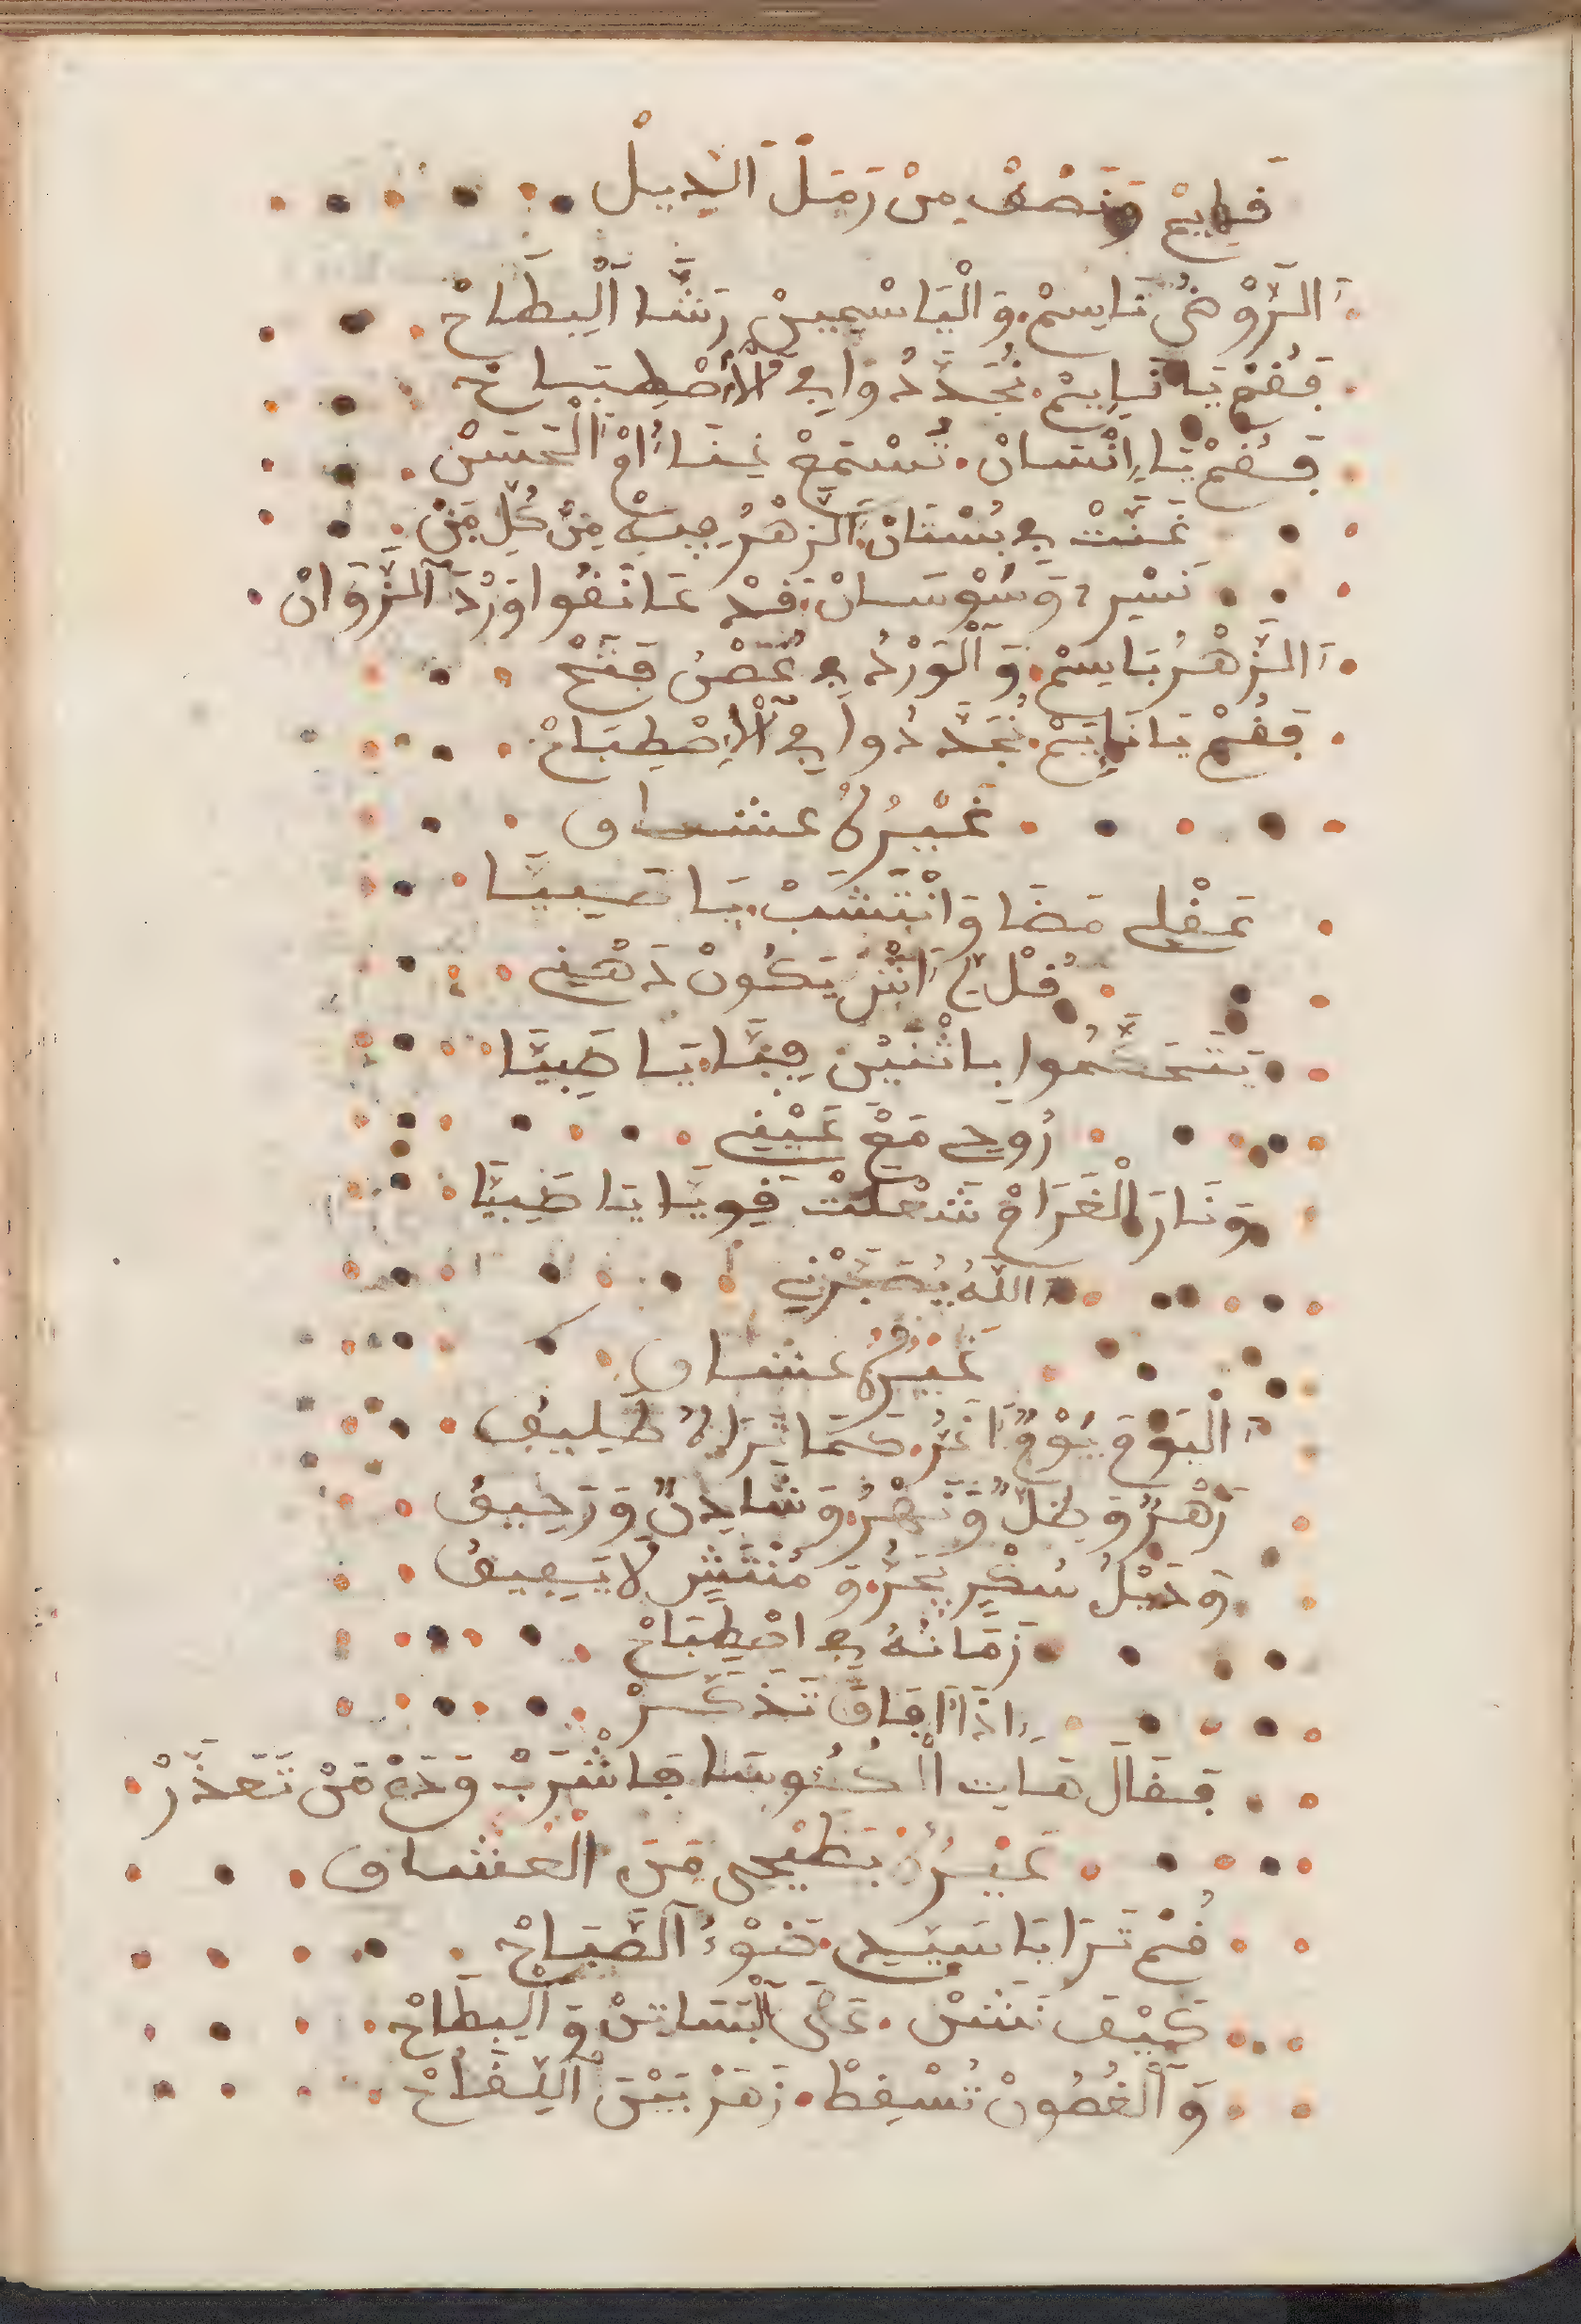 فَايِمْ وَنَصْفْ مِنْ رَمَلْ اَلذِيلْ
اَلرَّوْضُ نَاسِمْ وَالْيَاسْمِينْ رَشَّا اَلْبِطَاحْ
فَقُمْ يَا نَايِمْ نُجَدَّدُوا فِي الْاَصْطِبَاحْ
فَقُمْ يَا إِنْسَانْ تَسْمَعْ غِنَا أُمْ اَلْحَسَنْ
غَنَّتْ فِي بُسْتَانْ اَلزَّهْرُ فِيهْ مِنْ كُلِّ فَنْ
نَسْرِ وَسُوْسَانْ قَدْ عَانَقُوا وَرْدَ اَلزَّوَانْ
اَلزَّهْرُ بَاسِمْ وَالْوَرْدُ فِي غُصْنُ فَتَّحْ
فَقُمْ يَا نَايِمْ نُجَدَّدُوا فِي الْاِصْطِبَاحْ
غَيْرُهُ عشاق
عَقْلِي مَضَا وَانْتَشَبْ يَا صَبِيَّا
قُلْ لِي اَشْ يَكُونْ ذَهْنِي
يَتَحَكَّمُوا بِاثْنَيْن فِيَّا يَا صَبِيَّا
رُوحِي مَعْ عَيْنِي
وَنَارَ الْغَرَامْ شَعْلَتْ قَوِيَّا يَا صَبِيَّا
اَللَّهُ يُصَبَّرْنِي
غَيْرُهُ عشاق
اَلْيَوْمَ يَوْمٌ اَغَرُّ كَمَا تَرَاهُ طَلِيقُ
زَهْرٌ وَظِلٌّ وَنَهْرٌ وَشَادِنٌ وَرَحِيقُ
وَذَيْلُ سُكْرٍ يَجُرُّ وَمُنْتَشٍ لَا يَفِيقُ
زَمَانُهُ فِي اصْطِبَاحْ
اِذَا اَفَاقَ تَذَكَّرْ
فَقَالَ هَاتِ الْكُئُوسَا فَاشْرَبْ وَدَعْ مَنْ تَعَذَّرْ
غَيْرُهُ بَطَيْحِي مَنَ الْعشاق
قُمْ تَرَا يَا سَيّدِي ضَوْءُ اَلصَّبَاحْ
كَيْفَ نَشَنْ عَلَى الْبَسَاتِنْ وَالْبِطَاحْ
وَالْغُصُونْ تُسْقِطْ زَهَرْ بَيْنَ اَللِّقَاحْ